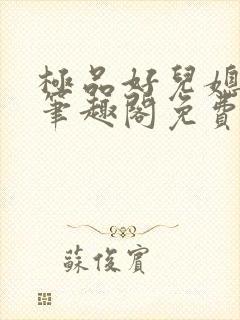 極品好兒媳
筆趣閣免費
蘇俊賓